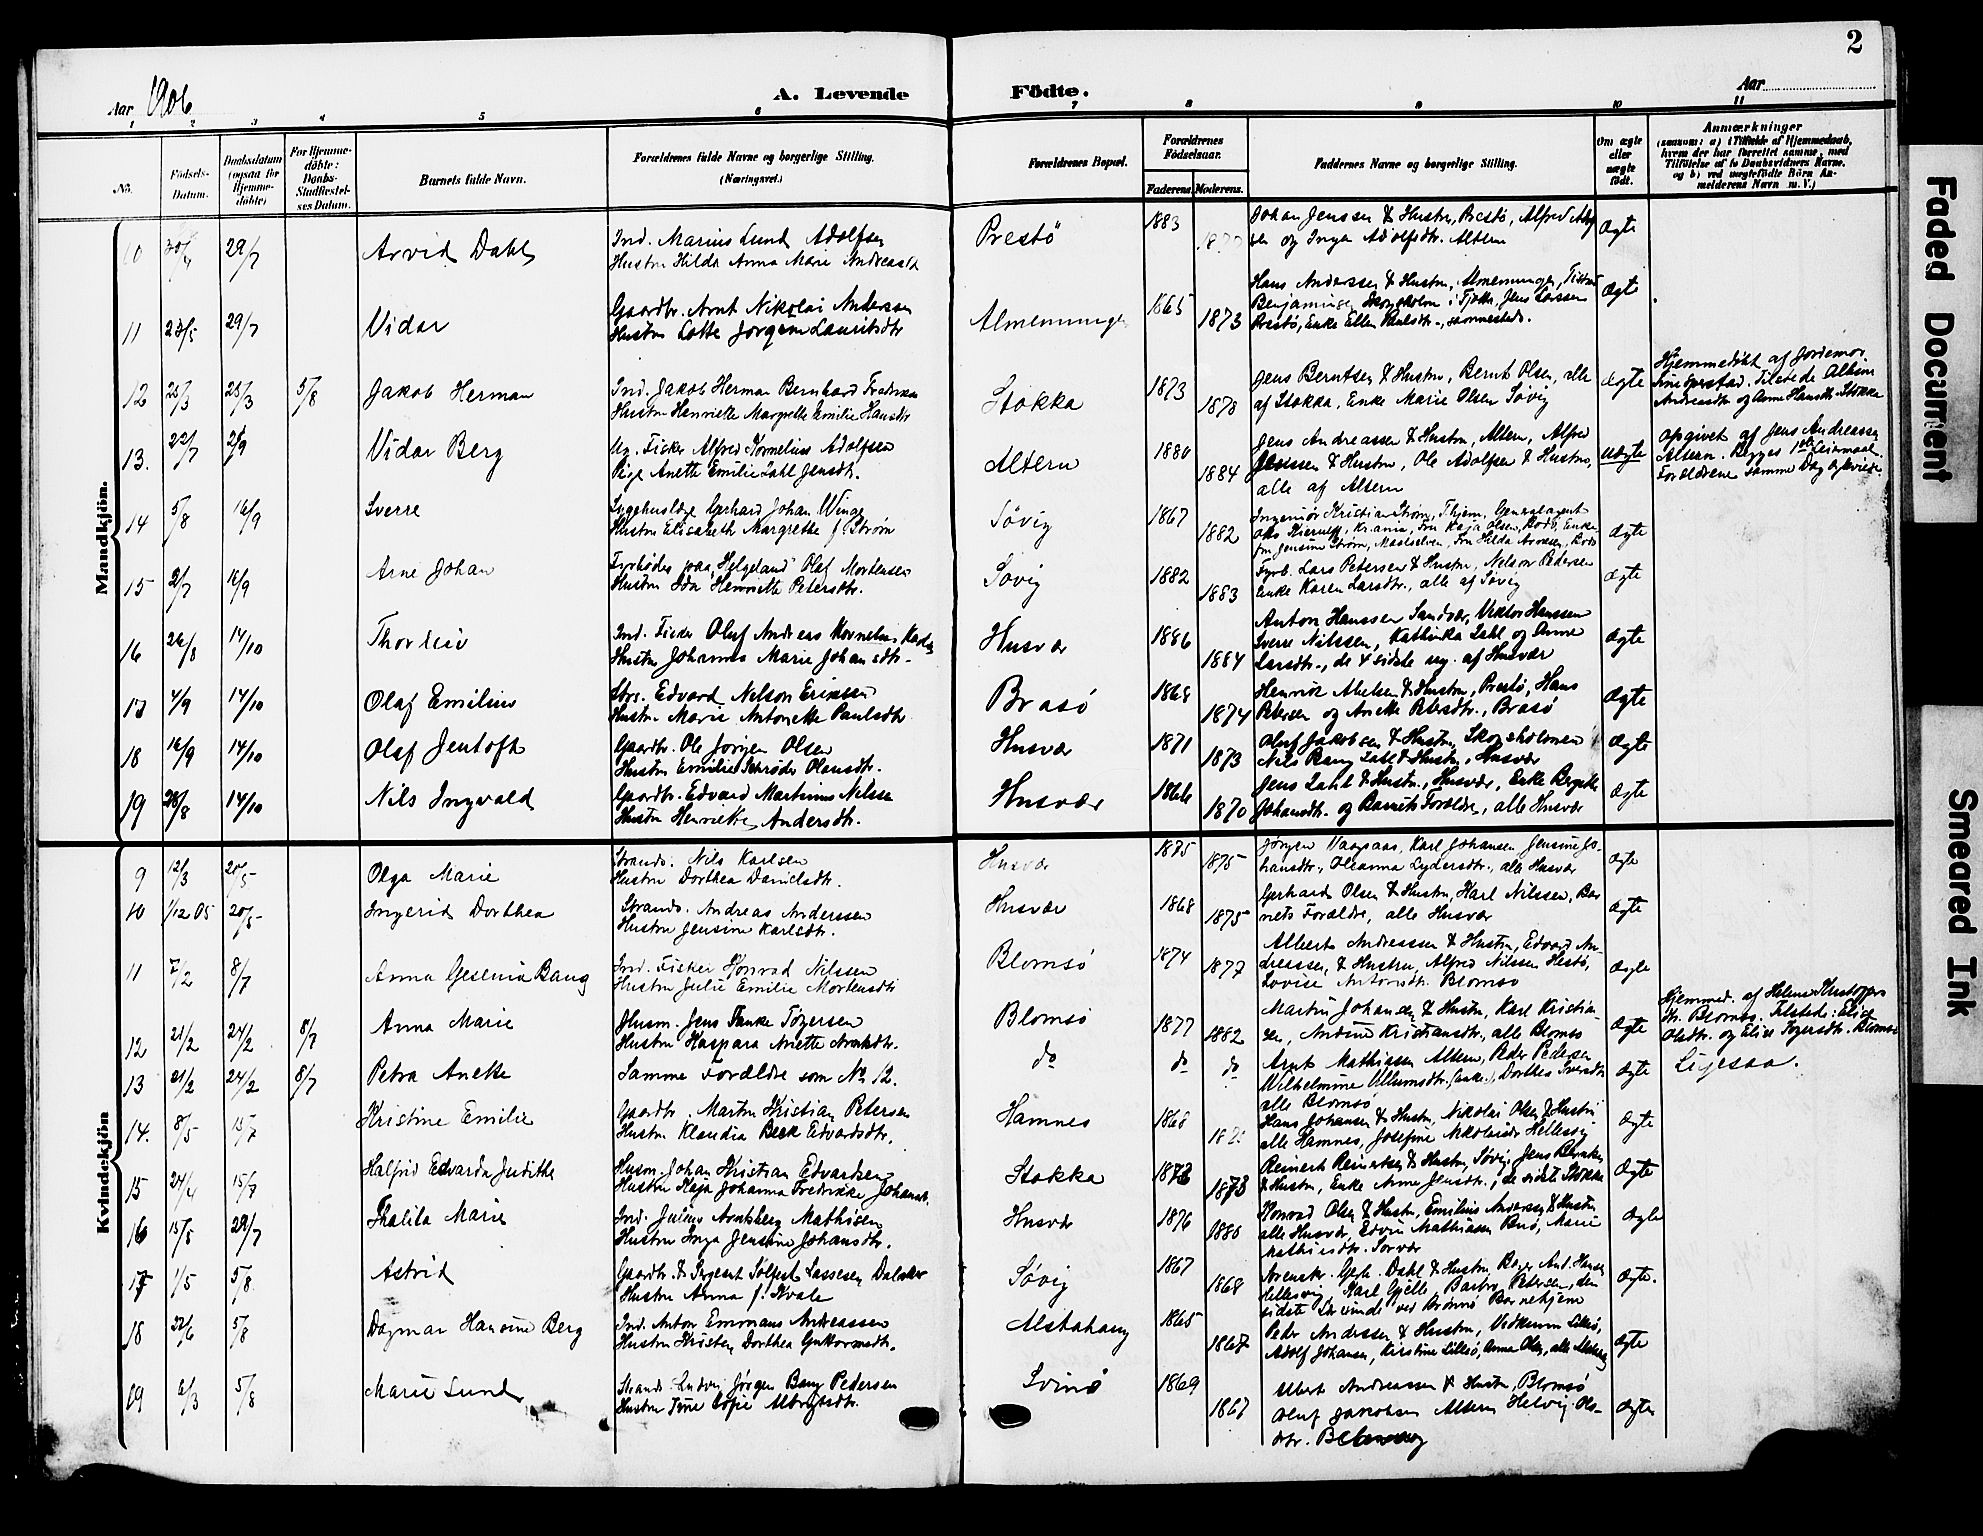 2
Aar 1906
A. Levende Födte.
Aar
1 2 3 4 5 6 7 8 9 10 11
No.
Födsels-Datum.
Daabsdatum (ogsaa for Hjemmedöbte)
For Hjemmedöbte: Daabs-Stadfæstelses Datum.
Barnets fulde Navn.
Forældrenes fulde Navne og borgerlige Stilling. (Næringsvei.)
Forældrenes Bopæl.
Forældrenes Födselsaar.
Faderens. Moderens.
Faddernes Navne og borgerlige Stilling.
Om ægte eller uægte födt.
Anmærkninger
(saasom: a) i Tilfælde af Hjemmedaab, hvem der har forrettet samme, med Tilföielse af to Daabsvidners Navne, og b) ved uægtefödte Börn Anmelderens Navn m. V.)
Mandkjön.
10 29/7 Arvid Dahl
Ind. Marius Lund Adolfsen
Hustru Hilda Anna Marie Andreasdt
Prestö 1883
Johan Jenssen & Hustru, Prestö, Alfred
og Inga Adolfsdtr. Altern
Ægte
11 23/5 29/7 Vidar
Gaardbr. Arnt Nikolai Anderssen
Hustru Lotte Jørgine Lauritsdtr
Almenninge 1865 1873
Hans Anderssen & Hustru, Almenningen,
Benjaminsen Skogsholm i Tjøtta, Jens Larssen
Prestö, Enke Ellen Paulsdtr., sammesteds.
Ægte
12 25/3 25/3 5/8 Jakob Herman
Ind. Jakob Herman Bernhard Fredriksen
Hustru Henriette Margrethe Emilie Hansdtr
Stokka 1873 1878
Jens Berntsen & Hustru, Bernt Olsen, alle
af Stokka, Enke Marie Olsen Søvig
Ægte
Hjemmedöbt af Jordemor
Tilstede Albin
Andreasdtr og Anne Hansdtr Stokka
13. 22/7 2/9 Vidar Berg
Ug. Fisker Alfred Kornelius Adolfsen
Pige Anette Emilie Zahl Jensdtr.
Altern 1880 1884
Jens Andreassen & Hustru, Altern, Alfred
Jenssen & Hustru, Ole Adolfsen & Hustru,
alle af Altern
uægte
Opgivet af Jens Andreassen
Altern. Begges 1ste Leiermaal.
Forældrene samme Dag ægteviede.
14 5/8 16/9 Sverre
Sygehuslæge Gerhard Johan Winge
Hustru Elisabeth Margrethe f. Strøm
Søvig 1867 1882
Ingeniör Kristian Strøm, Thjem, Generalagent
Kierulff, Krania, Fru Kaja Olsen, Bodö, Enke
fru Jensine Strøm, Maalselven, Fru Hilda Bodö
Ægte
15 2/7 16/9 Arne Johan
Fyrböder paa "Helgeland" Olaf Mortensen
Hustru Ida Henriette Petersdtr.
Søvig 1882 1883
Fyrb. Lars Petersen & Hustru, Nelson Pedersen
Enke Karen Larsdtr., alle af Søvig
Ægte
16 26/8 14/10 Thorleiv
Ind. Fisker Oluf Andreas Kornelius
Hustru Johanna Marie Johansdtr.
Husvær 1886 1884
Anton Hanssen Sandvær, Viktor Hanssen
Sverre Nilssen, Kathinka Zahl og Anne
Larsdtr., de 4 sidste ug. af Husvær
Ægte
17 4/9 14/10 Olaf Emilius
Sbrs. Edvard Nelson Eriksen
Hustru Marie Antonette Paulsdtr
Brasö 1868 1874
Henrik Abelsen & Hustru, Prestö, Hans
Petersen og Anette Petersdtr., Brasö
Ægte
18 16/9 14/10 Olaf Jentoft
Gaardbr. Ole Jörgen Olsen
Hustru Emilie Schrøder Olausdtr.
Husvær 1871 1873
Oluf Jakobsen & Hustru, Skogsholmen
Nils Bang Zahl & Hustru, Husvær
Ægte
19 28/8 14/10 Nils Ingvald
Gaardbr. Edvard Martinus Nilsen
Hustru Henriette Andersdtr.
Husvær 1866 1870
Jens Zahl & Hustru, Husvær, Enke Birgitte
Johansdtr. og Barnets Forældre, alle Husvær
Ægte
Kvindekjön
9 12/3 20/5 Olga Marie
Strands. Nils Karlsen
Hustru Dorthea Danielsdtr.
Husvær 1875 1875
Jørgen Vaagaas, Karl Johansen Jensine Jo-
hansdtr., Oleanna Lydersdtr., alle Husvær
Ægte
10 1/12 05 20/5 Ingerid Dorthea
Strands. Andreas Anderssen
Hustru Jensine Karlsdtr.
Husvær 1868 1875
Gerhard Olsen & Hustru, Karl Nilssen, Bar-
nets Forældre, alle Husvær
Ægte
11 7/2 8/7 Anna Gesenia Bang
Ind. Fisker Konrad Nilssen
Hustru Julie Emilie Mortensdtr
Blomsö 1874 1877
Albert Andreassen & Hustru, Edvard An-
dreassen & Hustru, Alfred Nilssen Hestö,
Lovise Antonsdtr. Blomsö
Ægte
12 21/2 24/2 8/7 Anna Marie
Husm. Jens Tanke Tøgersen
Hustru Kaspara Anette Arntsdtr.
Blomsö 1877 1882
Martin Johansen & Hustru, Karl Kristian-
sen, Andrine Kristiansdtr., alle Blomsö
Ægte
Hjemmed. af Helene Kristoffers
dtr. Blomsö. Tilstede: Elise
Olsdtr. og Elise Tøgersdtr. Blomsö
13 21/2 24/2 8/7 Petra Anette
Samme Forældre som No 12.
do do do
Arnt Mathiassen Altern, Peder Pedersen
Wilhelmine Villumsdtr. (enke), Dorthea Iversdtr
alle Blomsö
Ægte
Ligesaa.
14. 8/5 15/7 Kristine Emilie
Gaardbr. Martin Kristian Petersen
Hustru Klaudia Beck Edvardsdtr.
Hamnes 1868
Hans Johansen & Hustru, Nikolai Olsen & Hustru
alle Hamnes, Josefine Nikolaisdtr Hellesvig
Ægte
15 24/4 15/7 Halfrid Edvarda Judithe
Husm. Johan Kristian Edvardsen
Hustru Kaja Johanna Fredrikke Johansdt.
Stokka 1873 1873
Reinert Reinertsen & Hustru, Søvig, Jens Berntsen
& Hustru, Enke Anne Jensdtr., de sidste Stokka
Ægte
16 15/5 29/7 Thalita Marie
Ind. Julius Arntsberg Mathisen
Hustru Inga Jensine Johansdtr.
Husvær 1876 1880
Konrad Olsen & Hustru, Emilius Anderssen & Hustru
alle Husvær, Edvin Mathiassen Buö, Marie
Mathiasdtr. Sorvær
Ægte
17 1/5 5/8 Astrid
Gaardbr. & Sergeant Solfest Lassesen
Hustru Anna f. Kvale
Søvig 1867 1868
Dahl & Hustru, Roger Ant. Hansen
Hellesvig, Karl Gjelle, Barbro Petersen, den
sidste ved Brønnö Barnehjem
Ægte.
18 22/6 5/8 Dagmar Hansine Berg
Ind. Anton Emmanus Andreassen
Hustru Kristen Dorthea Guttormsdtr.
Alstahaug 1865 1867
Peder Andersen & Hustru, Vidkunn Lillesö,
Adolf Johansen, Kirstine Lillesö, Anna Olsen, alle
Ægte
19 6/3 5/8 Marie Lund
Strands. Ludvig Jørgen Bang Pedersen
Hustru Trine Sofie Albrigtsdtr.
Svinö 1869 1867
Albert Andreassen & Hustru, Blomsö
Oluf Jakobsen Altern Helvig Ols-
dtr.
Ægte
Faded Document
Smeared Ink